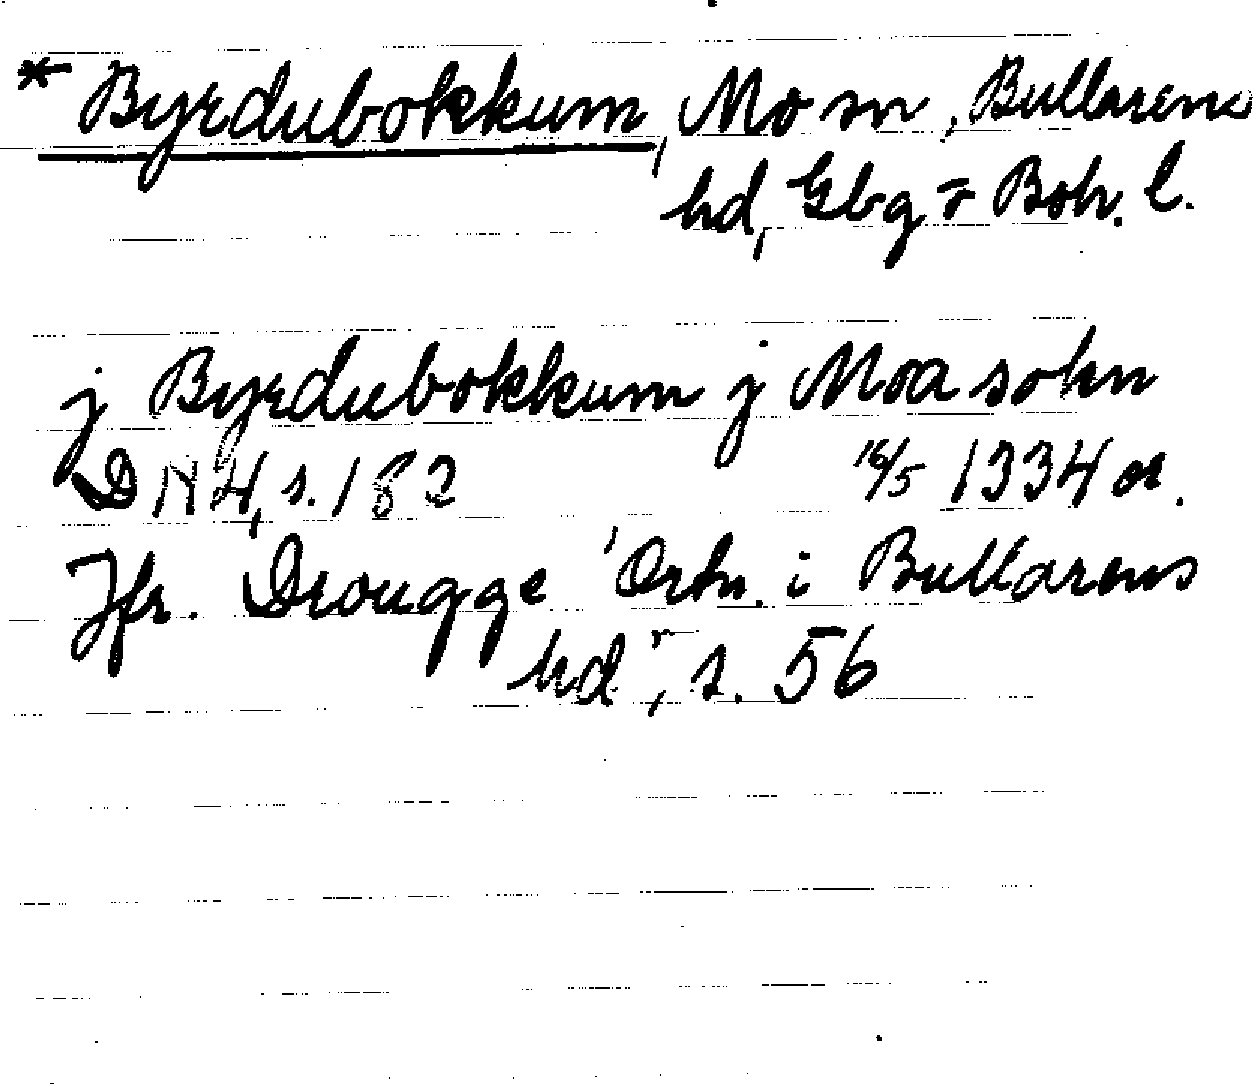 * Byrdubokkum, Mo sn, Bullarens
hd, Gbg o Boh. l.
j Byrdubokkum j Moa sokn
DN 4, s. 182 16/5 1334 or.
Jfr. Drougge "Ortn. i Bullarens
hd", s. 56